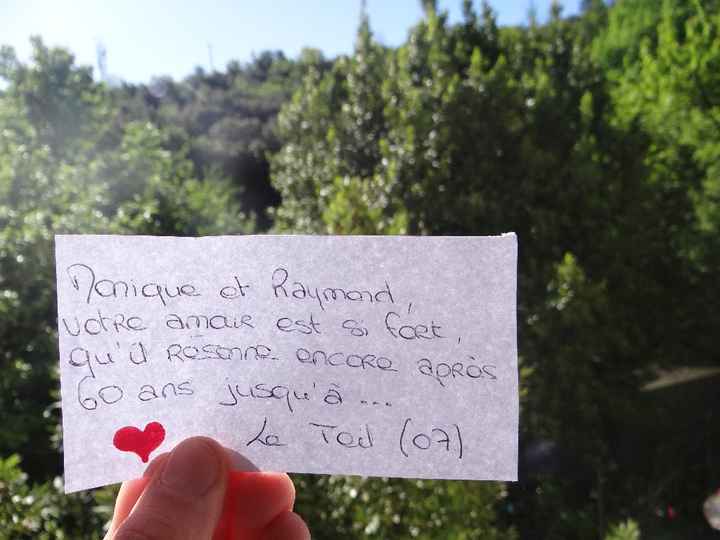 Monique et Raymond,
votre amour est si fort,
qu'il résonne encore après
60 ans jusqu'à ...
Le Teil (07)